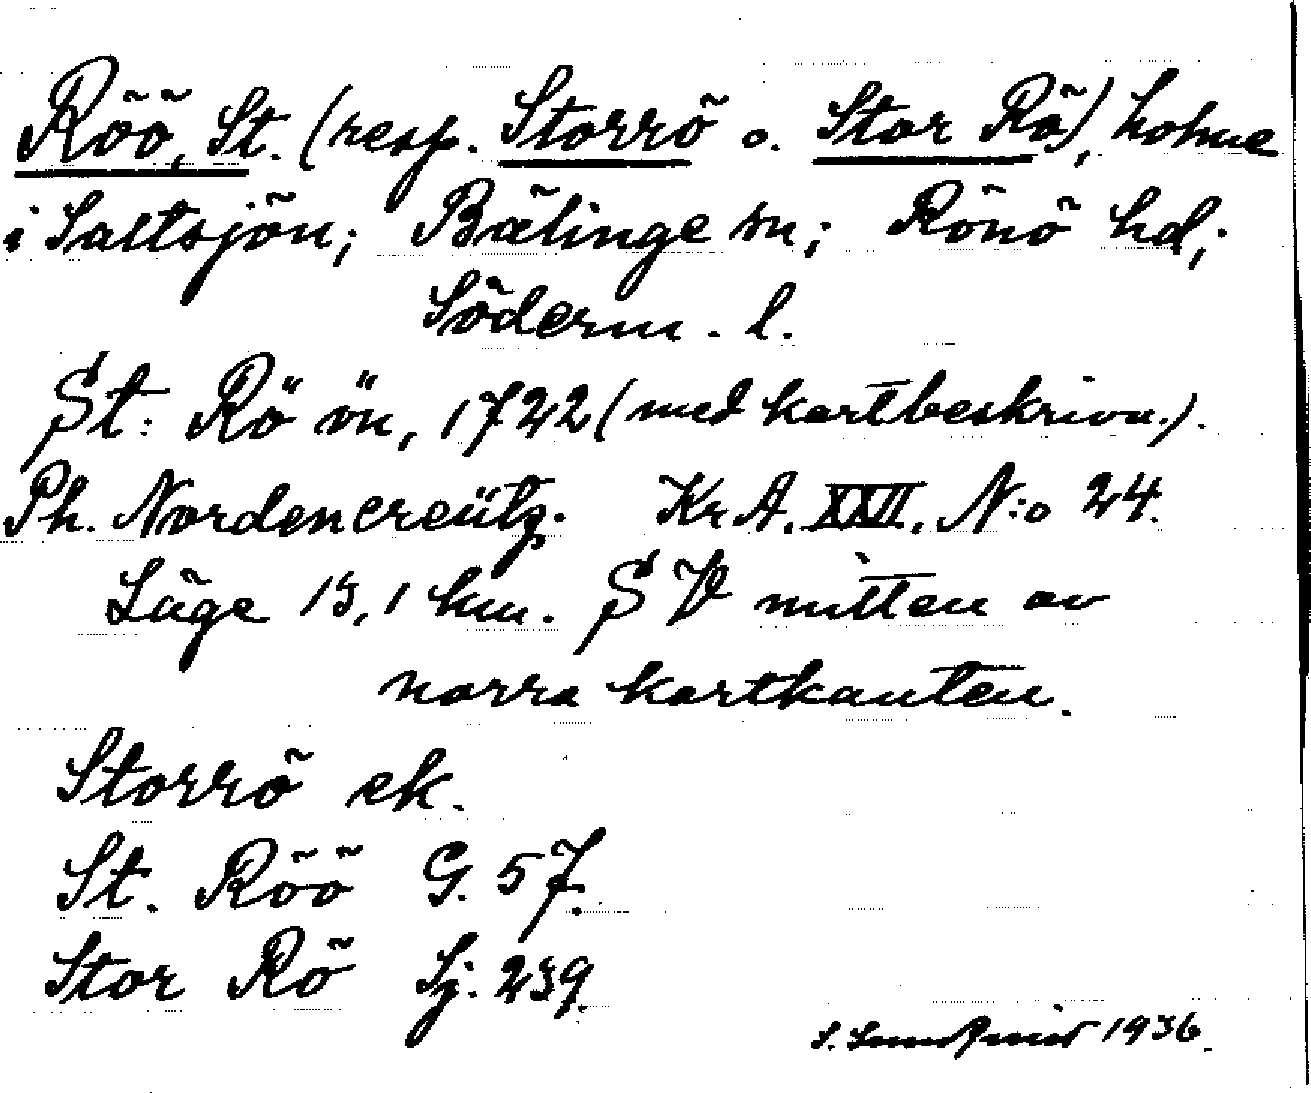 Röö, St. (resp. Storrö o. Stor Rö), holme
i Saltsjön; Bälinge sn; Rönö hd;
Söderm. l.
St: Rö ön, 1722 (med kartbeskrivn.).
Ph. Nordencreütz. Kr A. XXII. N:o 24.
Läge 13,1 km. S V mitten av
norra kartkanten.
Storrö ek.
St. Röö G. 57.
Stor Rö Sj. 239.
1936.